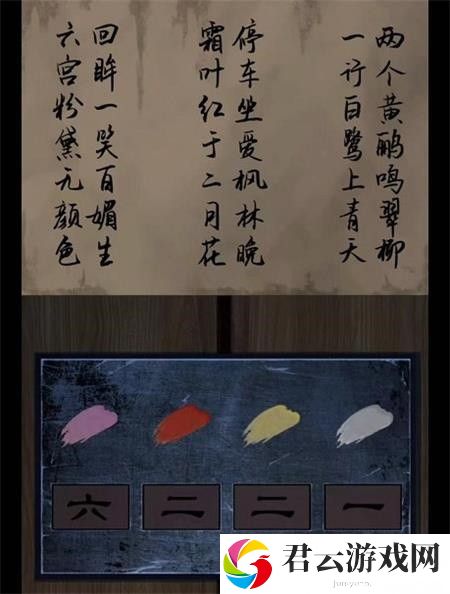 两个黄鹂鸣翠柳
一行白鹭上青天
停车坐爱枫林晚
霜叶红于二月花
回眸一笑百媚生
六宫粉黛无颜色
六 二 二 一
君云游戏网